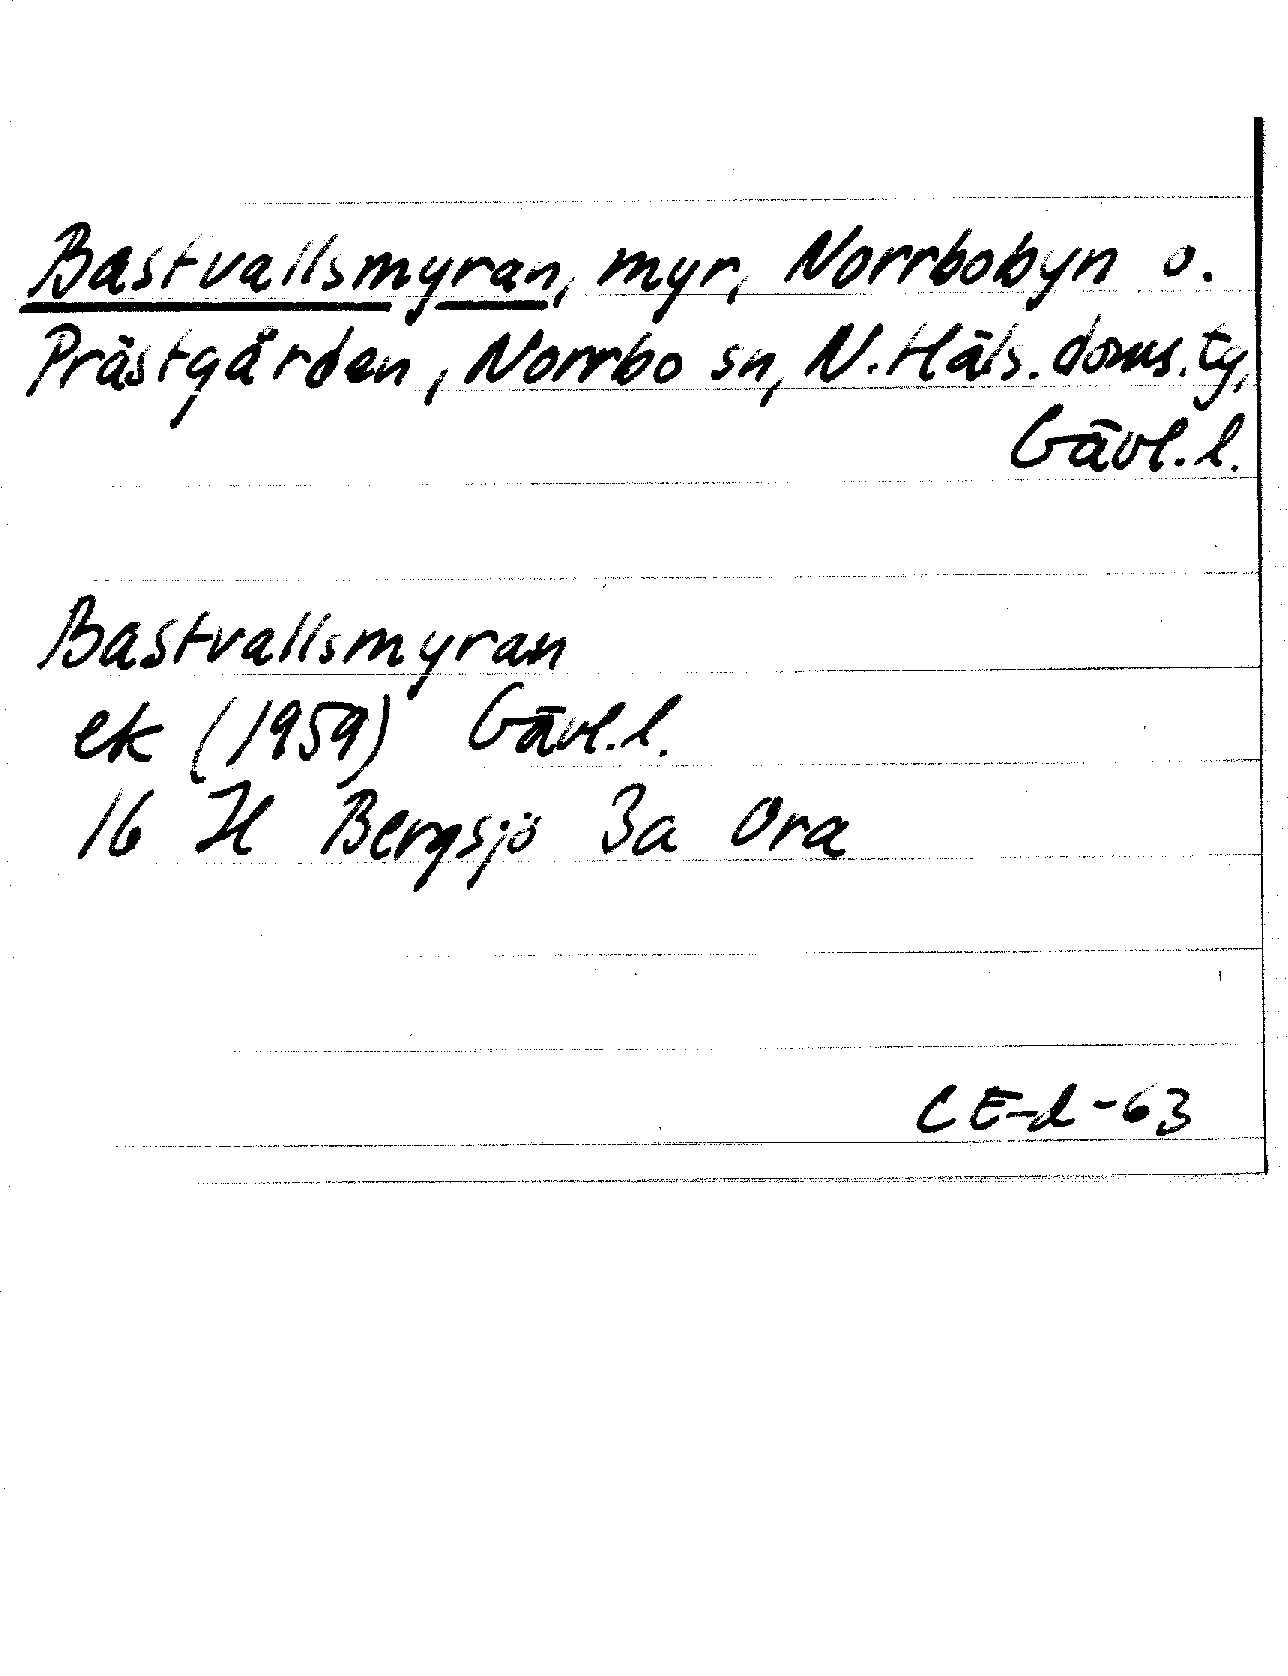 Bastvallsmyran, myr, Norrbobyn o.
Prästgården, Norrbo sn, N. Häls. doms. tg,
Gävl. l.
Bastvallsmyran
ek (1959) Gävl. l.
16 H Bergsjö 3a Ora
CE-d-63